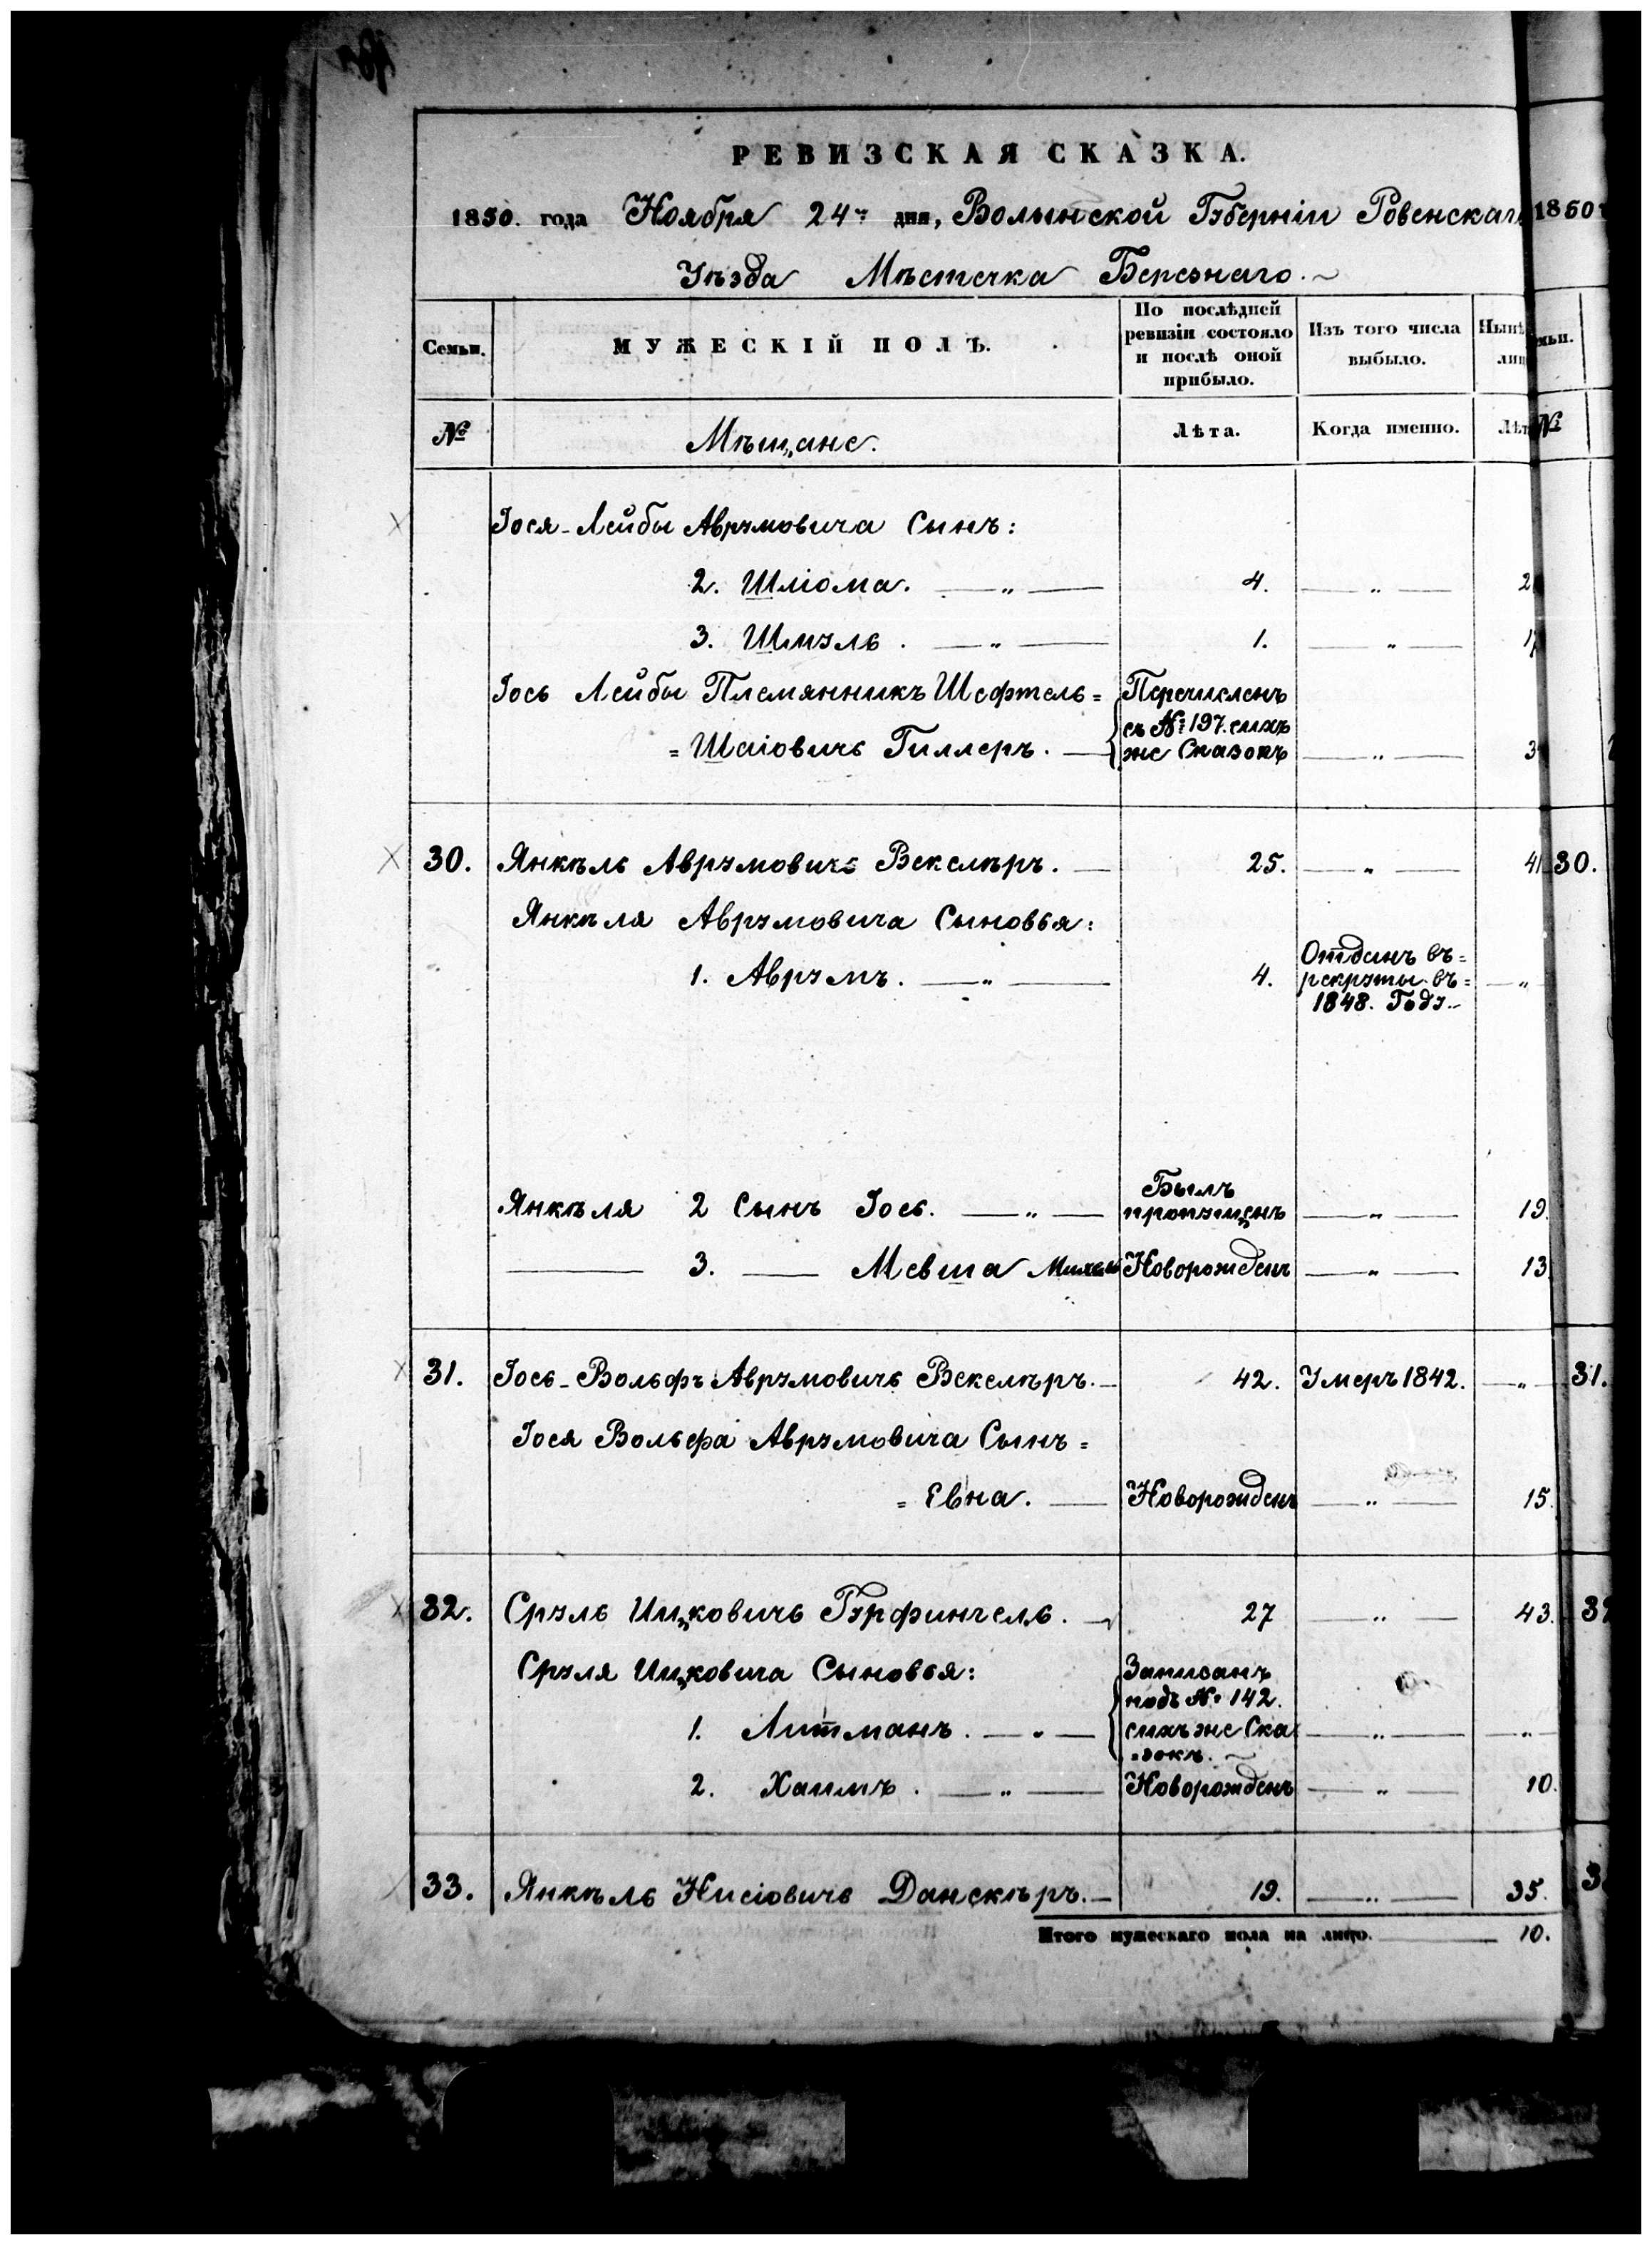 РЕВИЗСКАЯ СКАЗКА.
1850. года Ноября 24го дня, Волынской Губерніи Ровенскаго
Уѣзда Мѣстечка Березнаго.
Семьи. МУЖЕСКІЙ ПОЛЪ. По послѣдней ревизіи состояло и послѣ оной прибыло. Изъ того числа выбыло.
№ Мѣщане. Лѣта. Когда именно.
Іося-Лейбы Аврумовича Сынъ:
2. Шліома. — „ — 4. — „ —
3. Шмуль. — „ — 1. — „ —
Іось Лейбы Племянникъ Шефтель=
=Шаіовичь Гиллеръ. — Перечисленъ съ № 197. сихъ же Сказокъ — „ —
30. Янкѣль Аврумовичь Векслѣръ. — 25. — „ — 41 30.
Янкѣля Аврумовича Сыновья:
1. Аврумъ. — „ — 4. Отданъ въ= рекруты въ= 1848. Году. — „
Янкѣля 2 Сынъ Іось. — „ — Былъ пропущенъ — „ — 19.
— 3. — Мевша Новорожденъ — „ — 13
31. Іось-Вольфъ Аврумовичь Векслѣръ. — 42. Умеръ 1842. — „ — 31.
Іося Вольфа Аврумовича Сынъ=
= Евна. — Новорожденъ — „ — 15.
32. Сруль Ицковичь Гурфингель. — 27 — „ — 43.
Сруля Ицковича Сыновья:
1. Литманъ. — „ — Записанъ подъ № 142. сихъ же Ска=зокъ. — „ — — „ —
2. Хаимъ. — „ — Новорожденъ — „ — 10.
33. Янкѣль Нисіовичь Данскѣръ. — 19. — „ — 35.
Итого мужескаго пола на лицо. — 10.